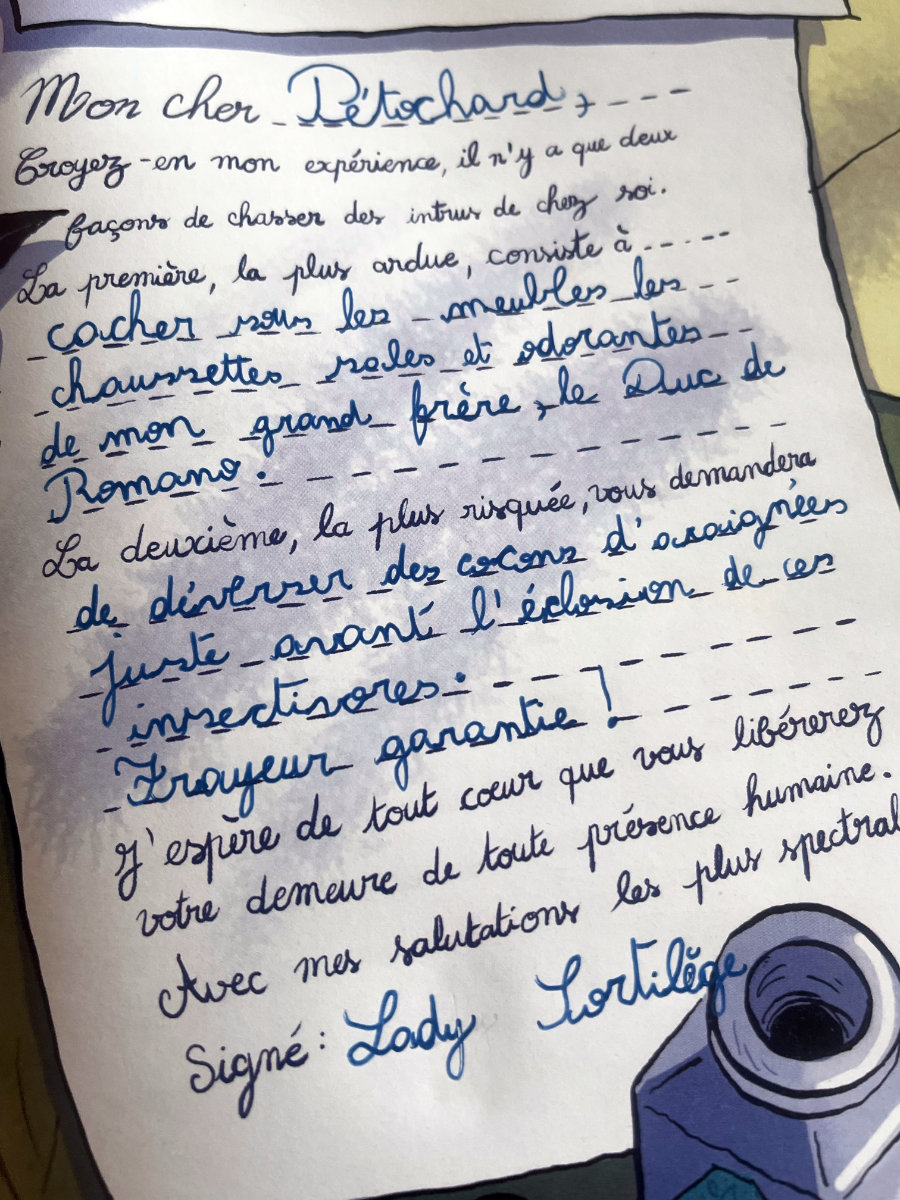 Mon cher Pétochard,
Croyez-en mon expérience, il n'y a que deux
façons de chasser des intrus de chez soi.
La première, la plus ardue, consiste à
cacher sous les meubles les
chaussettes sales et odorantes
de mon grand frère, le Duc de
Romano.
La deuxième, la plus risquée, vous demandera
de déverser des cocons d'araignées
juste avant l'éclosion de ces
insectivores.
Frayeur garantie !
J'espère de tout cœur que vous libérerez
votre demeure de toute présence humaine.
Avec mes salutations les plus spectral
Signé : Lady Sortilège